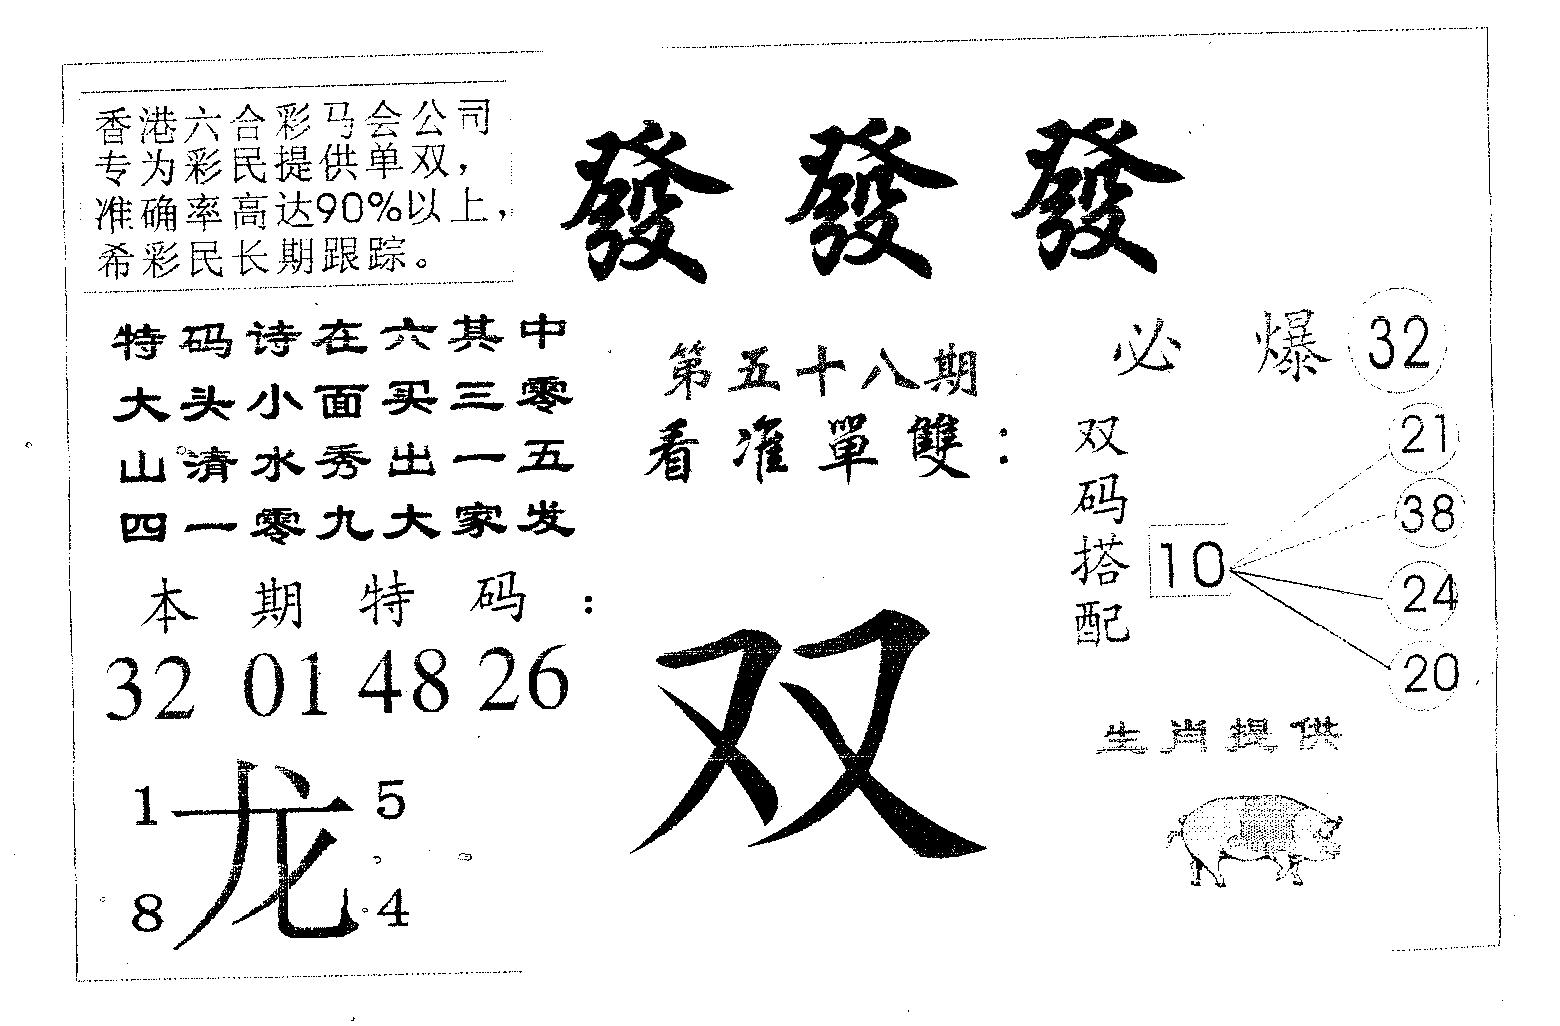 香港六合彩马会公司
专为彩民提供单双，
准确率高达90%以上，
希彩民长期跟踪。
發發發
特码诗在六其中
大头小面买三零
山清水秀出一五
四一零九大家发
第五十八期
看准單雙：
必爆32
双码搭配
10
21
38
24
20
本期特码：
32 01 48 26
双
生肖提供
1 5
龙
8 4